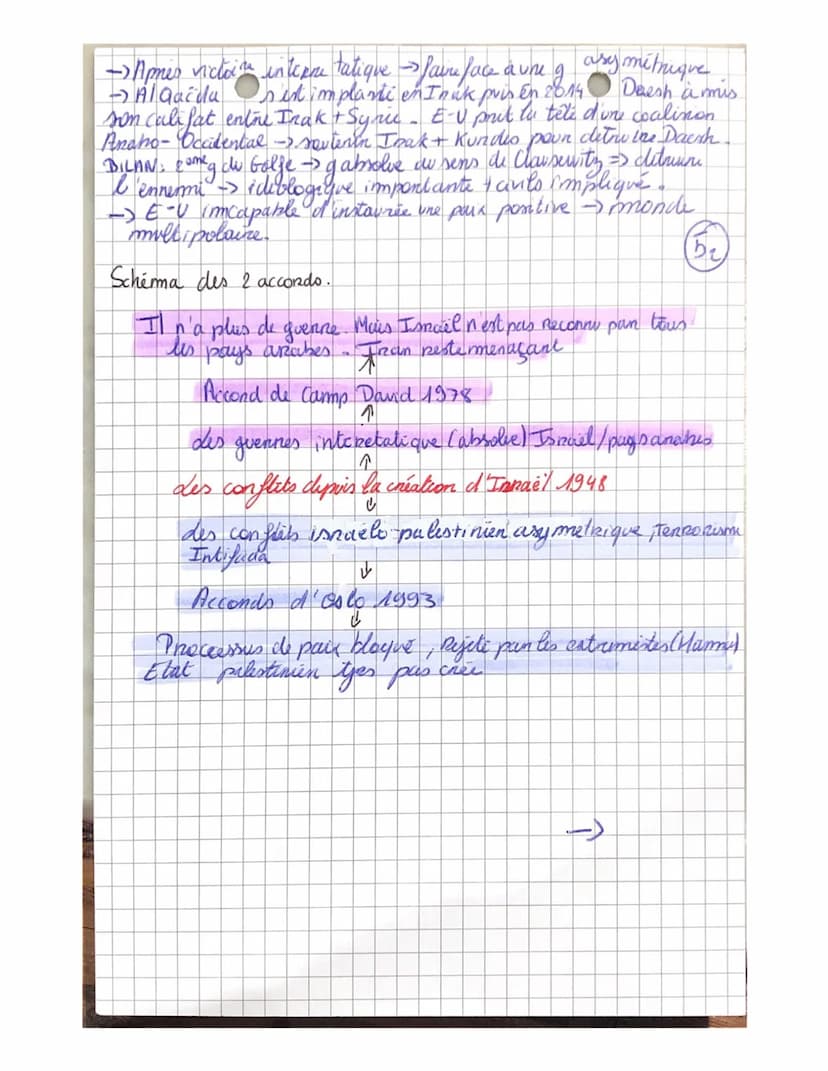 → Après victoire interetatique → faire face à une g asymétrique
→ Al Qaïda s'est implanté en Irak puis En 2014 Daesh à mis
son califat entre Irak + Syrie. E-U prut la tête d'une coalition
Arabo-Occidental → soutenir Irak + Kurdes pour detruire Daesh.
BILAN: 2eme g du Golfe → g absolue au sens de Clausewitz => détruire
l'ennemi → idéologique importante + civils impliqué.
→ E-U imcapable d'instaurée une paix positive → monde
multipolaire.
52
Schéma des 2 accords.
Il n'a plus de guerre. Mais Israël n'est pas reconnu par tous
les pays arabes. Iran reste menaçant
↑
Accord de Camp David 1978
↑
des guerres interetatique (absolue) Israël/pays arabes
↑
des conflits depuis la création d'Israël 1948
↓
des conflits israélo-palestinien asymetrique, Terrorisme
Intifada
↓
Accords d'Oslo 1993
↓
Processus de paix bloqué, rejeté par les extremistes (Hamas)
Etat palestinien tjrs pas créé
→